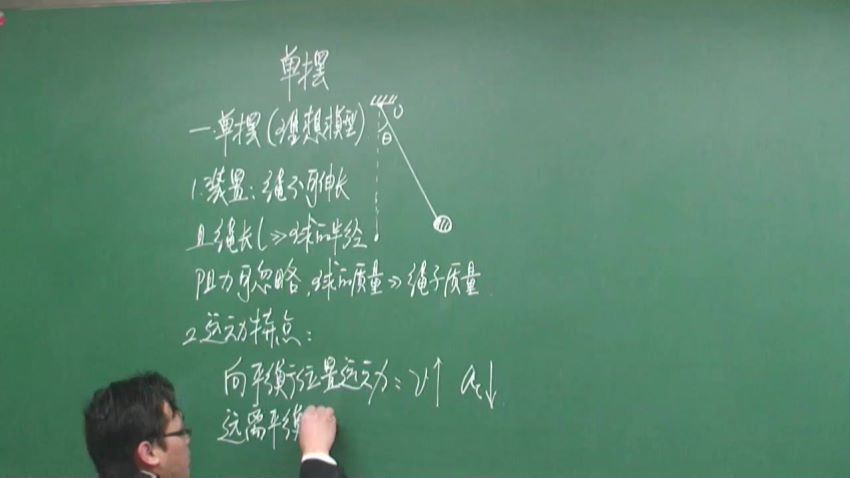 单摆
一.单摆(理想模型)
O
θ
1.装置:绳不可伸长
且绳长l≫球的半径
阻力可忽略,球的质量≫绳子质量
2.运动特点:
向平衡位置运动:v↑ a↓
远离平衡